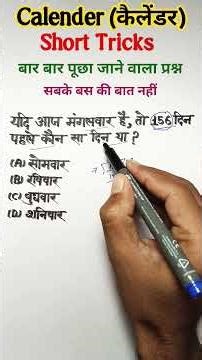 Calender (कैलेंडर)
Short Tricks
बार बार पूछा जाने वाला प्रश्न
सबके बस की बात नहीं
यदि आज मंगलवार है, तो 156 दिन
पहले कौन सा दिन था?
(A) सोमवार
(B) रविवार
(C) बुधवार
(D) शनिवार